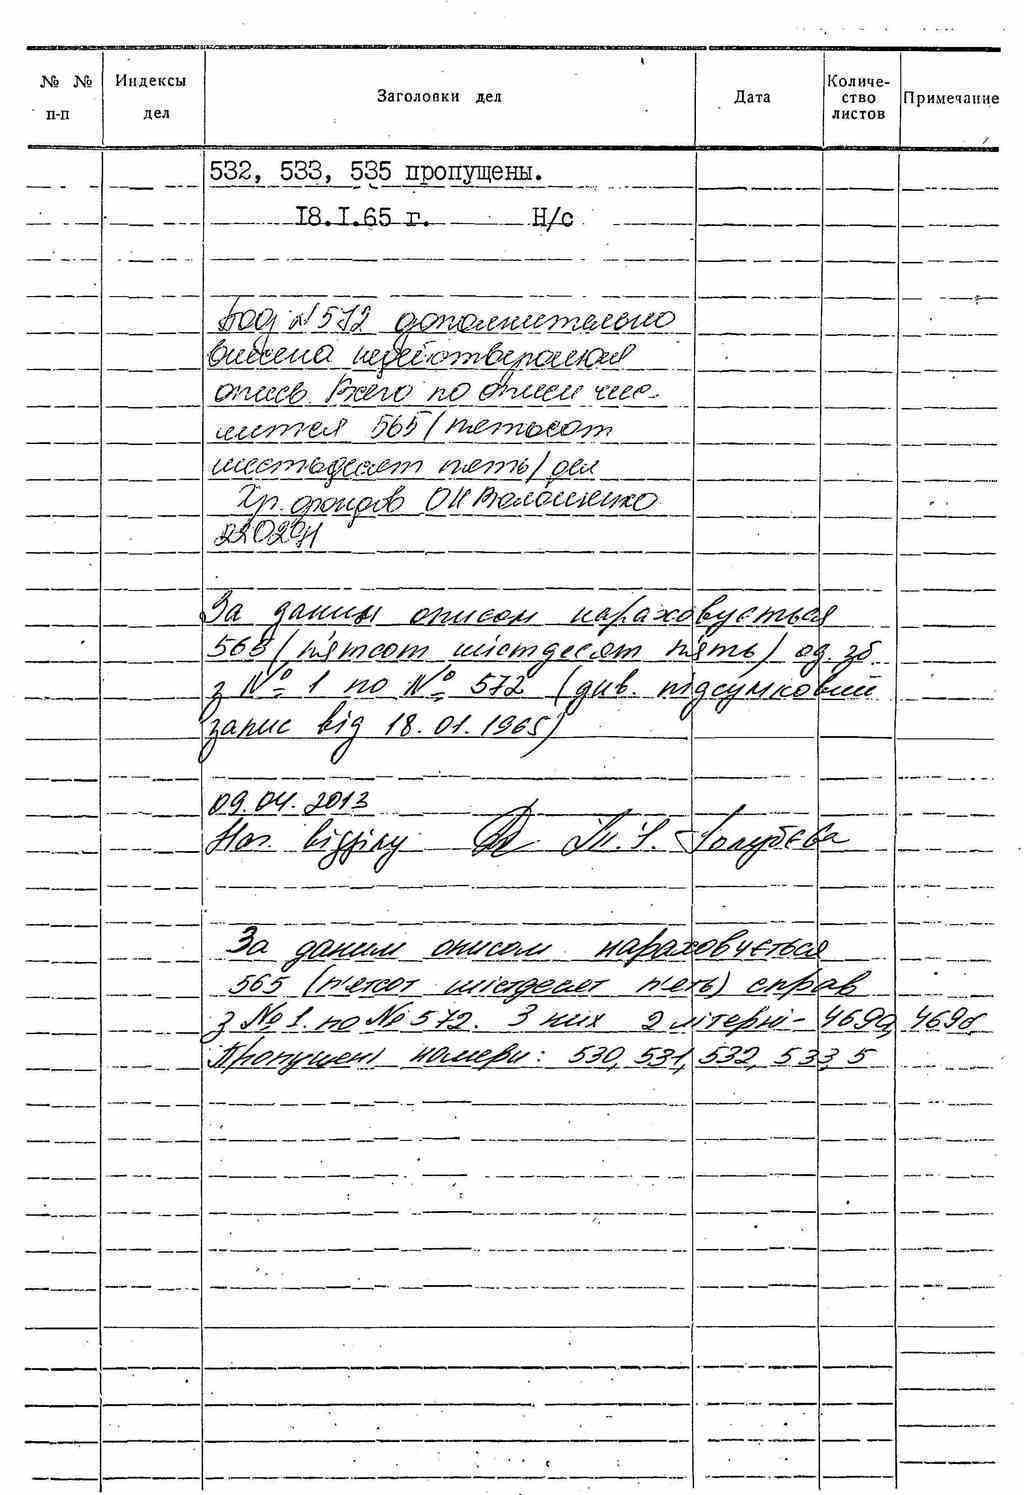 № №
п-п
Индексы
дел
Заголовки дел
Дата
Количе-
ство
листов
Примечание
532, 533, 535 пропущены.
18.I.65 г. Н/с
Под №572 дополнительно
внесена недействующая
опись. Всего по описи чис-
лится 565 / пятьсот
шестьдесят пять / дел
Хр. фондов
За даним описом нараховується
565 (п'ятсот шістдесят п'ять) од. зб
з № 1 по № 572 (див. підсумковий
запис від 18.01.1965)
09.04.2013
Нач. відділу Голубєва
За даним описом нараховується
565 (п'ятсот шістдесят п'ять) справ
з № 1 по № 572. З них 2 літерні - 469а, 469б
Пропущені номери: 530, 531, 532, 533, 5